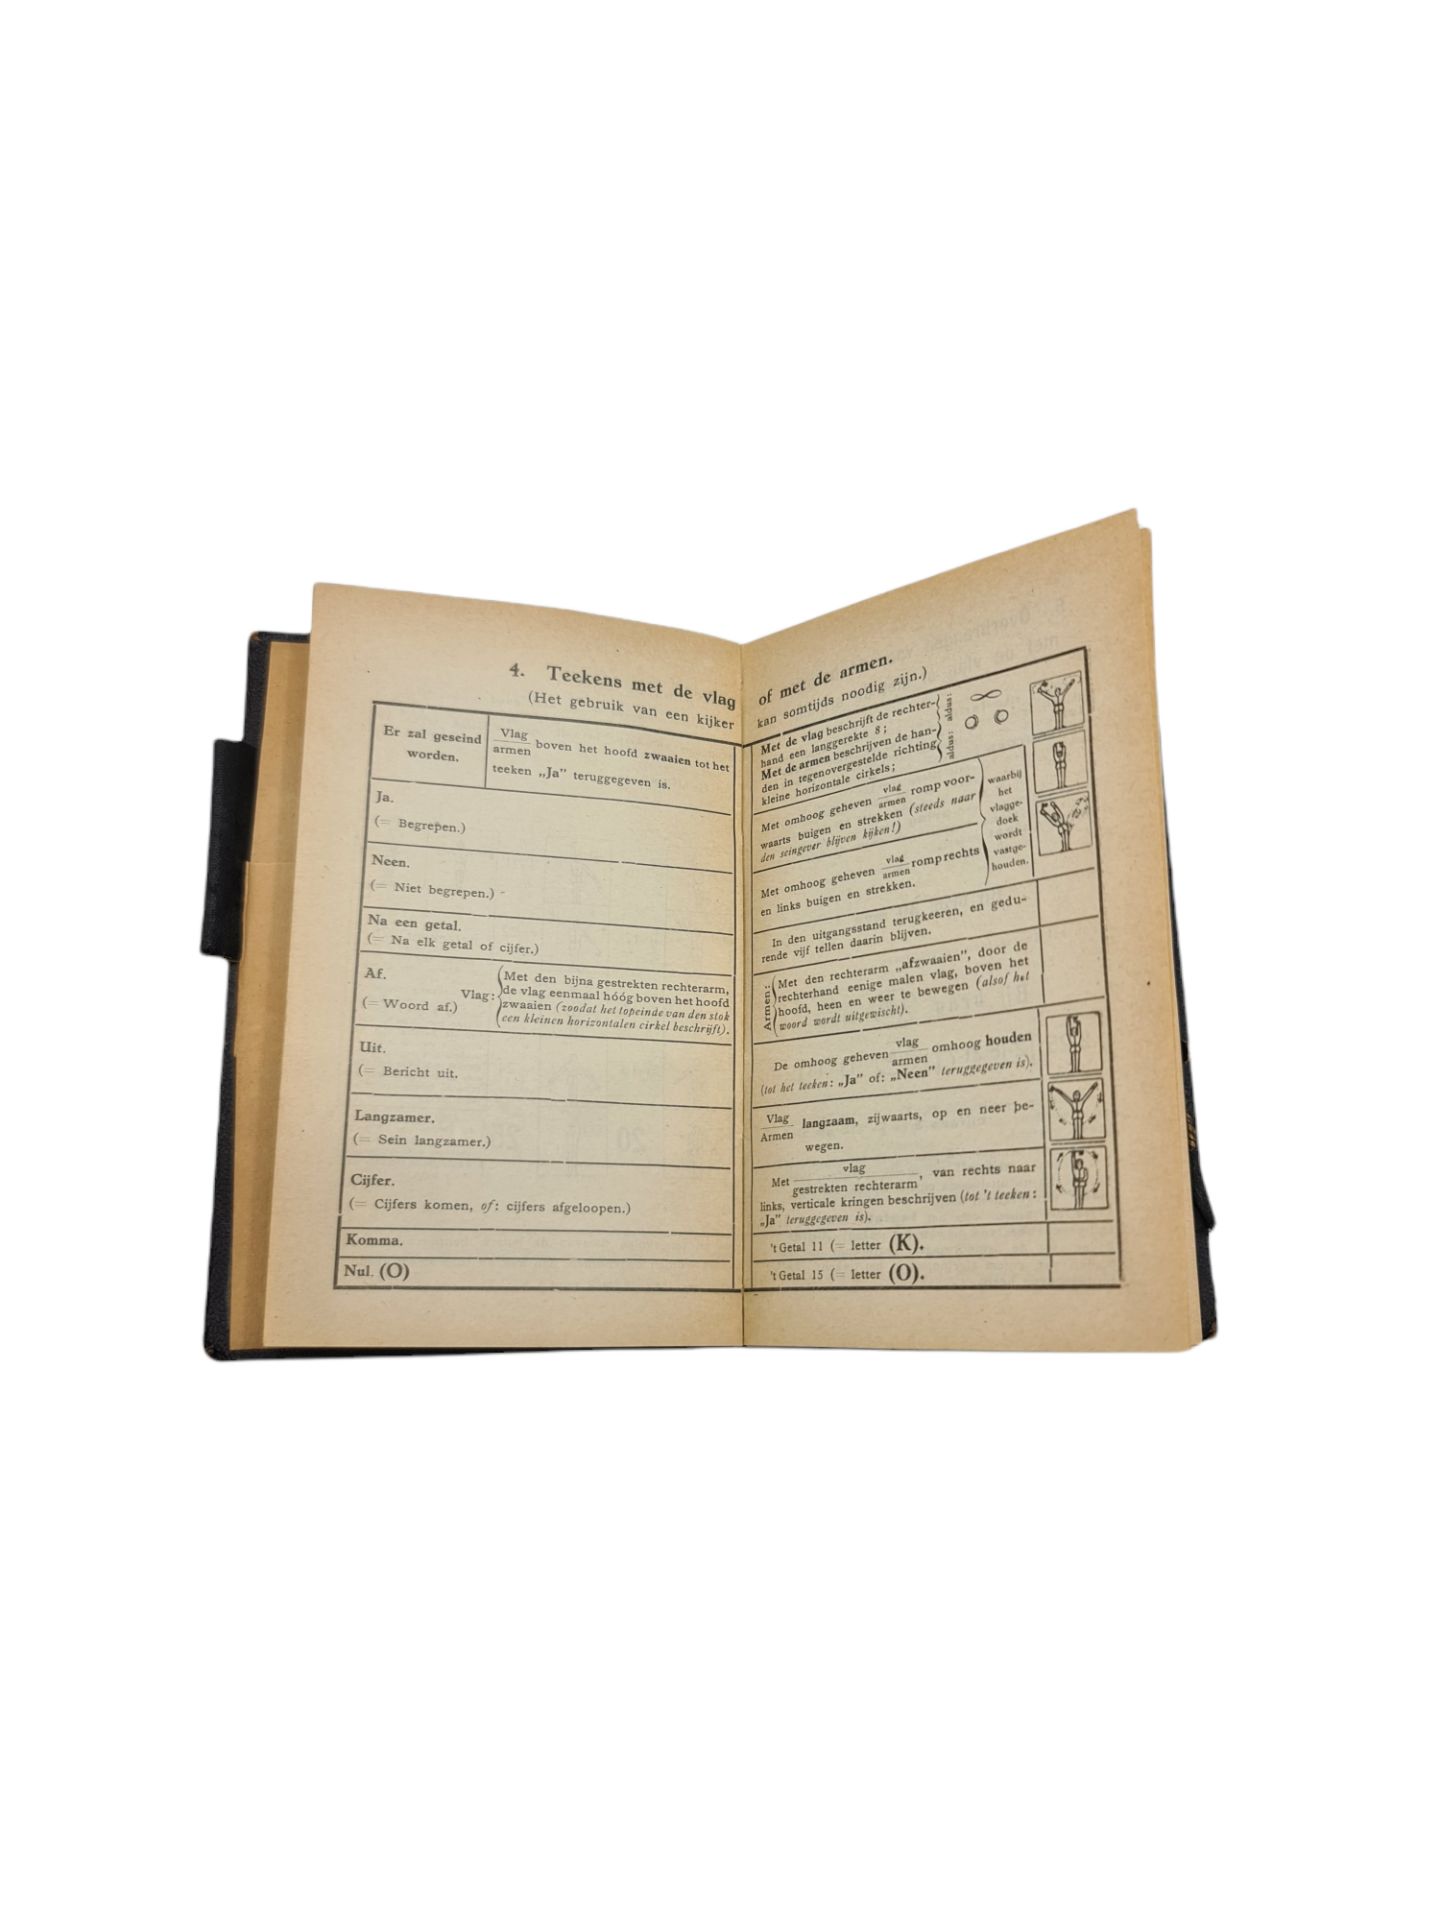 4. Teekens met de vlag
(Het gebruik van een kijker
Er zal geseind
worden.
Vlag
armen boven het hoofd zwaaien tot het
teeken „Ja” teruggegeven is.
Ja.
(= Begrepen.)
Neen.
(= Niet begrepen.)
Na een getal.
(= Na elk getal of cijfer.)
Af.
(= Woord af.)
Vlag:
Met den bijna gestrekten rechterarm,
de vlag eenmaal hóóg boven het hoofd
zwaaien (zoodat het topeinde van den stok
een kleinen horizontalen cirkel beschrijft).
Uit.
(= Bericht uit.
Langzamer.
(= Sein langzamer.)
Cijfer.
(= Cijfers komen, of: cijfers afgeloopen.)
Komma.
Nul. (O)
of met de armen.
kan somtijds noodig zijn.)
Met de vlag beschrijft de rechter-
hand een langgerekte 8;
Met de armen beschrijven de han-
den in tegenovergestelde richting
kleine horizontale cirkels;
aldus:
aldus:
Met omhoog geheven vlag
armen romp voor-
waarts buigen en strekken (steeds naar
den seingever blijven kijken!)
Met omhoog geheven vlag
armen romp rechts
en links buigen en strekken.
waarbij
het
vlagge-
doek
wordt
vastge-
houden.
In den uitgangsstand terugkeeren, en gedu-
rende vijf tellen daarin blijven.
Armen:
Met den rechterarm „afzwaaien”, door de
rechterhand eenige malen vlag, boven het
hoofd, heen en weer te bewegen (alsof het
woord wordt uitgewischt).
De omhoog geheven vlag
armen omhoog houden
(tot het teeken: „Ja” of: „Neen” teruggegeven is).
Vlag
Armen langzaam, zijwaarts, op en neer be-
wegen.
Met vlag
gestrekten rechterarm, van rechts naar
links, verticale kringen beschrijven (tot 't teeken:
„Ja” teruggegeven is).
't Getal 11 (= letter (K).
't Getal 15 (= letter (O).